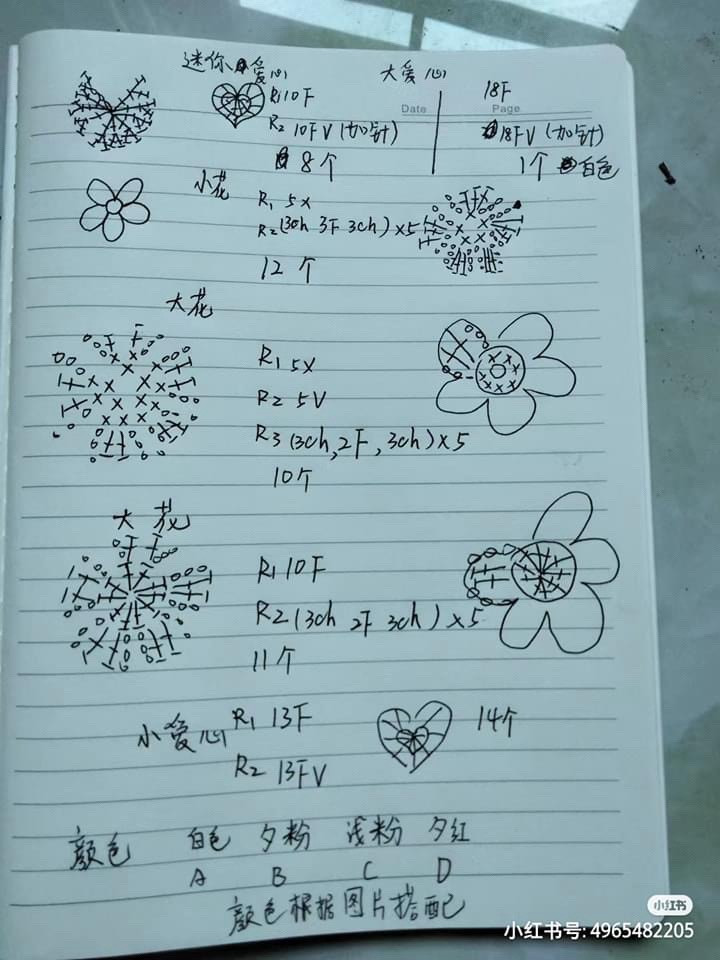 迷你爱心 大爱心
R1 10F 18F
Date Page
R2 10FV (加针) 18FV (加针)
8个 1个 白色
小花 R1 5X
R2 (3ch 3F 3ch)×5
12个
大花
R1 5X
R2 5V
R3 (3ch, 2F, 3ch)×5
10个
大花
R1 10F
R2 (3ch 2F 3ch)×5
11个
小爱心 R1 13F 14个
R2 13FV
颜色 白色 夕粉 浅粉 夕红
A B C D
颜色根据图片搭配
小红书
小红书号: 4965482205